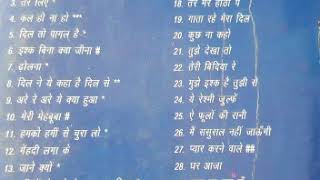 3. तेरे लिए *
4. कल हो ना हो ***
5. दिल तो पागल है *
6. इश्क बिना क्या जीना #
7. ढोलना *
8. दिल ने ये कहा है दिल से **
9. अरे रे अरे ये क्या हुआ *
10. मेरी मेहबूबा #
11. हमको हमीं से चुरा लो *
12. मेंहदी लगा के
13. जाने क्यों *
18. तेरे मेरे होठों पे
19. गाता रहे मेरा दिल
20. कुछ ना कहो
21. तुझे देखा तो
22. तेरी बिंदिया रे
23. मुझे इश्क है तुझी से
24. ये रेश्मी जुल्फें
25. ऐ फूलों की रानी
26. मैं ससुराल नहीं जाऊँगी
27. प्यार करने वाले ##
28. घर आजा